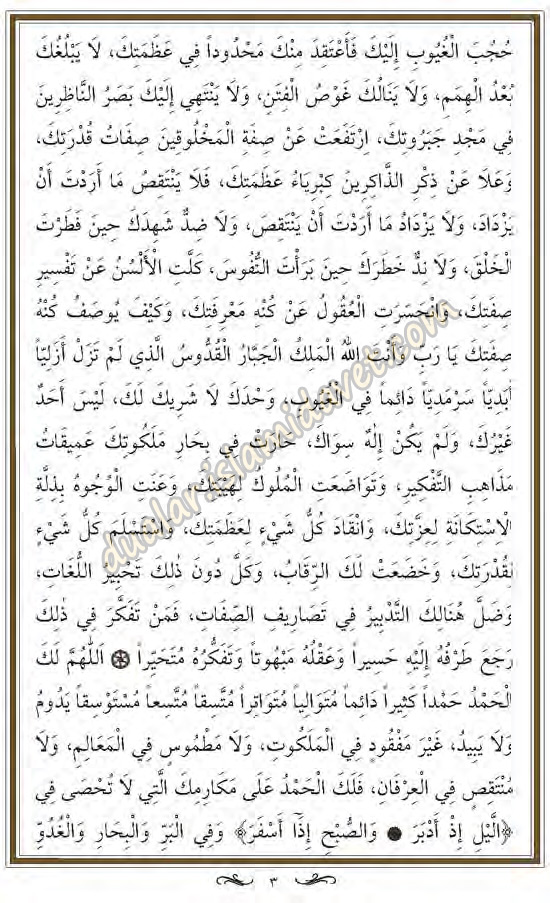 حُجُبَ الْغُيُوبِ إِلَيْكَ فَأَعْتَقِدَ مِنْكَ مَحْدُوداً فِي عَظَمَتِكَ، لَا يَبْلُغُكَ
بُعْدُ الْهِمَمِ، وَلَا يَنَالُكَ غَوْصُ الْفِتَنِ، وَلَا يَنْتَهِي إِلَيْكَ بَصَرُ النَّاظِرِينَ
فِي مَجْدِ جَبَرُوتِكَ، اِرْتَفَعَتْ عَنْ صِفَةِ الْمَخْلُوقِينَ صِفَاتُ قُدْرَتِكَ،
وَعَلَا عَنْ ذِكْرِ الذَّاكِرِينَ كِبْرِيَاءُ عَظَمَتِكَ، فَلَا يَنْتَقِصُ مَا أَرَدْتَ أَنْ
يَزْدَادَ، وَلَا يَزْدَادُ مَا أَرَدْتَ أَنْ يَنْتَقِصَ، وَلَا ضِدٌّ شَهِدَكَ حِينَ فَطَرْتَ
الْخَلْقَ، وَلَا نِدٌّ حَطَرَكَ حِينَ بَرَأْتَ النُّفُوسَ، كَلَّتِ الْأَلْسُنُ عَنْ تَفْسِيرِ
صِفَتِكَ، وَانْحَسَرَتِ الْعُقُولُ عَنْ كُنْهِ مَعْرِفَتِكَ، وَكَيْفَ يُوصَفُ كُنْهُ
صِفَتِكَ يَا رَبِّ وَأَنْتَ اللهُ الْمَلِكُ الْجَبَّارُ الْقُدُّوسُ الَّذِي لَمْ تَزَلْ أَزَلِيّاً
أَبَدِيّاً سَرْمَدِيّاً دَائِماً فِي الْغُيُوبِ، وَحْدَكَ لَا شَرِيكَ لَكَ، لَيْسَ أَحَدٌ
غَيْرُكَ، وَلَمْ يَكُنْ إِلٰهٌ سِوَاكَ، حَارَتْ فِي بِحَارِ مَلَكُوتِكَ عَمِيقَاتُ
مَذَاهِبِ التَّفْكِيرِ، وَتَوَاضَعَتِ الْمُلُوكُ لِهَيْبَتِكَ، وَعَنَتِ الْوُجُوهُ بِذِلَّةِ
الْاِسْتِكَانَةِ لِعِزَّتِكَ، وَانْقَادَ كُلُّ شَيْءٍ لِعَظَمَتِكَ، وَاسْتَسْلَمَ كُلُّ شَيْءٍ
لِقُدْرَتِكَ، وَخَضَعَتْ لَكَ الرِّقَابُ، وَكَلَّ دُونَ ذٰلِكَ تَحْبِيرُ اللُّغَاتِ،
وَضَلَّ هُنَالِكَ التَّدْبِيرُ فِي تَصَارِيفِ الصِّفَاتِ، فَمَنْ تَفَكَّرَ فِي ذٰلِكَ
رَجَعَ طَرْفُهُ إِلَيْهِ حَسِيراً وَعَقْلُهُ مَبْهُوتاً وَتَفَكُّرُهُ مُتَحَيِّراً ۞ اَللّٰهُمَّ لَكَ
الْحَمْدُ حَمْداً كَثِيراً دَائِماً مُتَوَالِياً مُتَوَاتِراً مُتَّسِقاً مُتَّسِعاً مُسْتَوْسِقاً يَدُومُ
وَلَا يَبِيدُ، غَيْرَ مَفْقُودٍ فِي الْمَلَكُوتِ، وَلَا مَطْمُوسٍ فِي الْمَعَالِمِ، وَلَا
مُنْتَقِصٍ فِي الْعِرْفَانِ، فَلَكَ الْحَمْدُ عَلَى مَكَارِمِكَ الَّتِي لَا تُحْصَى فِي
﴿الَّيْلِ إِذْ أَدْبَرَ ● وَالصُّبْحِ إِذَٓا أَسْفَرَ﴾ وَفِي الْبَرِّ وَالْبِحَارِ وَالْغُدُوِّ
٣
dualar.islamidavet.com